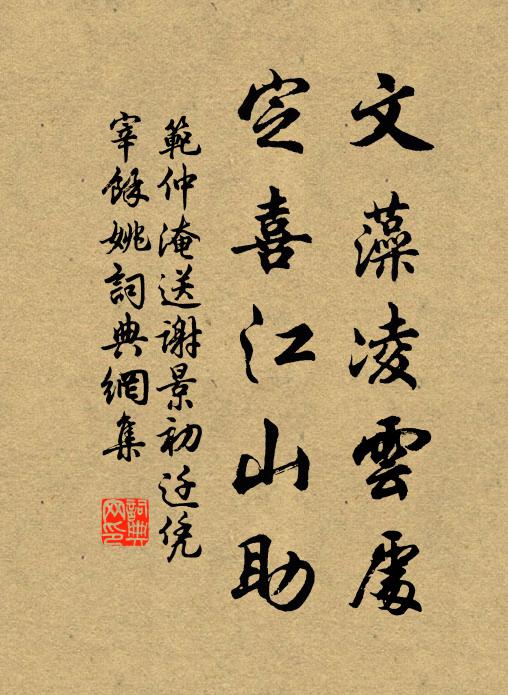 文藻凌雲處
定喜江山助
範仲淹送謝景初迁凭
宰餘姚詞典網集
詞典网印